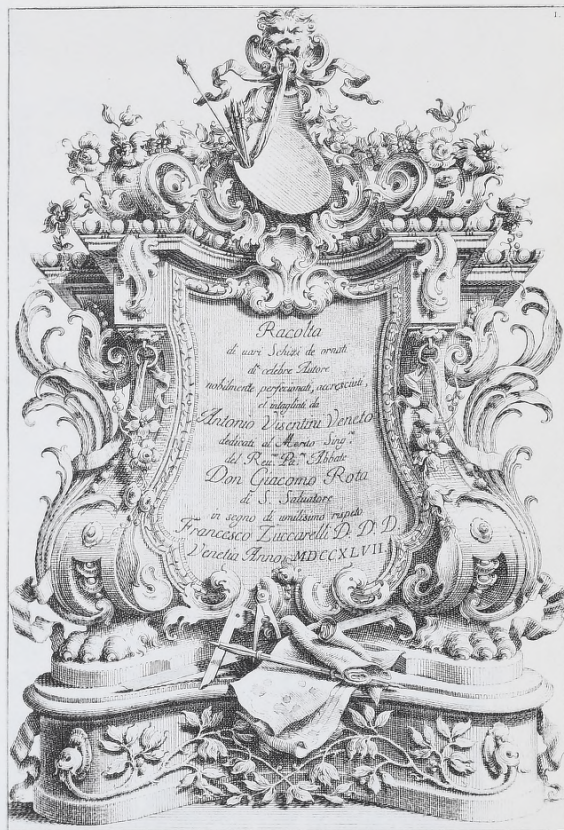 1.
Racolta
di uari Schizi de ornati
di celebre Autore
nobilmente perfecionati, accresciuti,
et intagliati da
Antonio Visentini Veneto
dedicati al Merito Sing.r
del Reu.mo Pa.re Abbate
Don Giacomo Rota
di S. Saluatore
in segno di umilissimo rispeto
Francesco Zuccarelli D. D. D.
Venetia Anno MDCCXLVII.